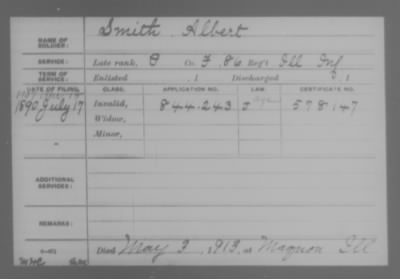 NAME OF SOLDIER: Smith, Albert
SERVICE: Late rank, P Co. F, 86 Reg't Ill Inf
TERM OF SERVICE: Enlisted , 1 Discharged , 1
DATE OF FILING. CLASS. APPLICATION NO. LAW. CERTIFICATE NO.
1890 July 17 Invalid, 844.243 J 578.147
Widow,
Minor,
ADDITIONAL SERVICES:
REMARKS:
Died May 3, 1913, at Maquon Ill